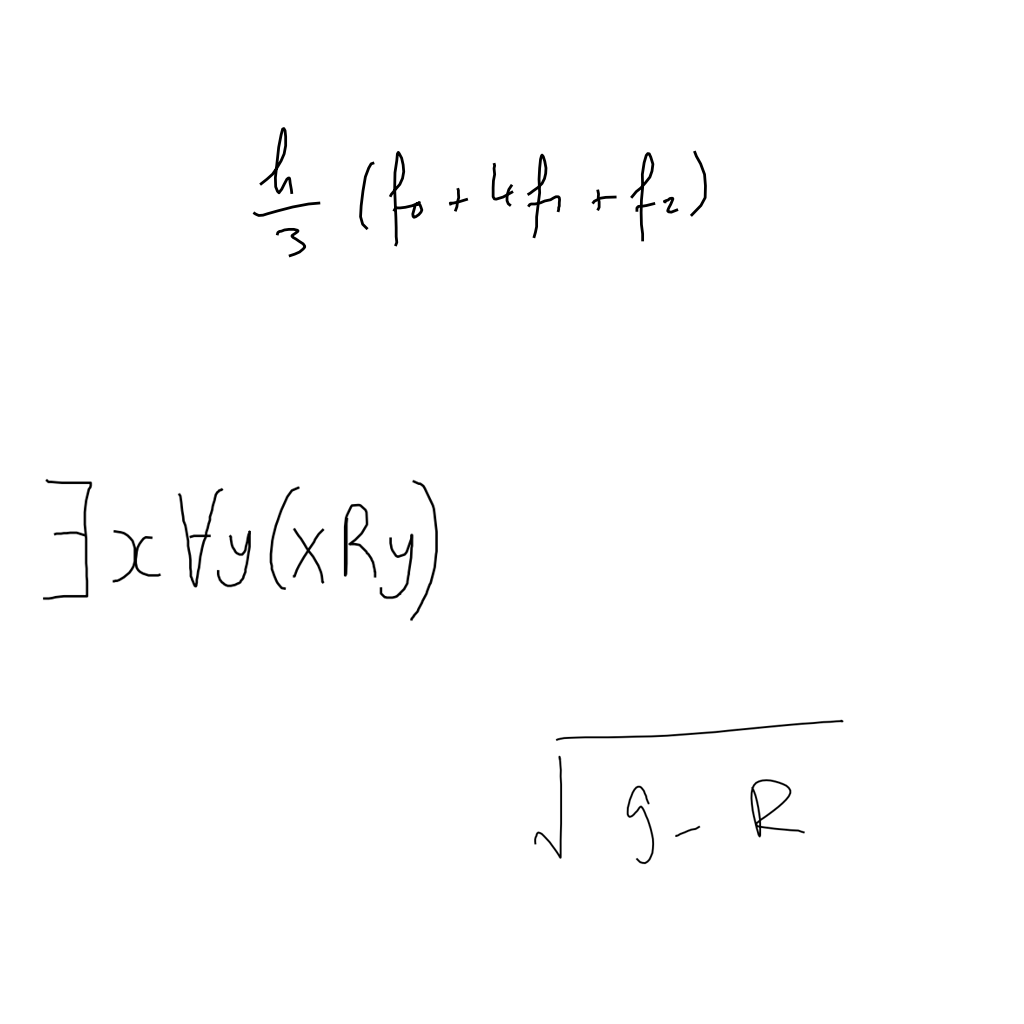 \frac{h}{3} (f_0 + 4f_1 + f_2)
∃x∀y(xRy)
\sqrt{g - R}